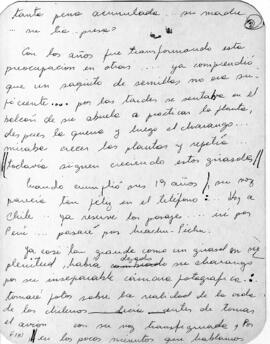 tanta pena acumulada... su madre
... su ha presa
2
Con los años fue transformando esta
preocupación en otras .... ya comprendió
que un saquito de semillas no era su-
ficiente... por las tardes se sentaba en el
balcón de su abuela a practicar la flauta,
después la quena y luego el charango...
miraba crecer las plantas y repetía...
todavía siguen creciendo estos girasoles
Cuando cumplió sus 19 años / su voz
parecía tan feliz en el teléfono: Voy a
Chile. ya reservé los pasajes ... iré por
Perú ... pasaré por Machu-Pichu.
Ya casi tan grande como un girasol en su
plenitud, había dejado su charango
por su inseparable cámara fotográfica:
tomaré fotos sobre la realidad de la vida
de los chilenos antes de tomar
el avión con su voz transfigurada,
en los pocos minutos que hablamos